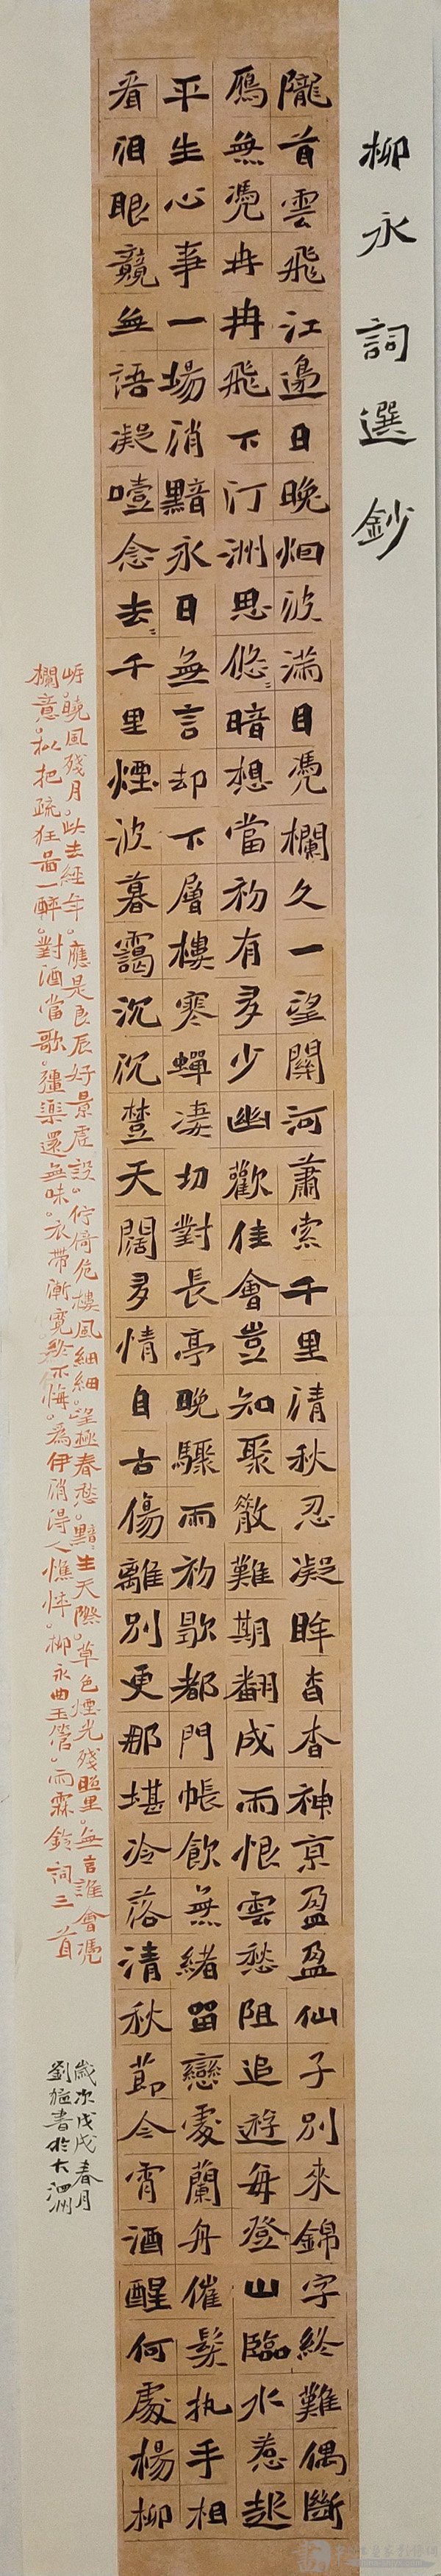 柳永詞選鈔
隴首雲飛江邊日晚烟波滿目憑欄久一望關河蕭索千里清秋忍凝眸杳杳神京盈盈仙子別來錦字終難偶斷
鴈無憑冉冉飛下汀洲思悠〻暗想當初有多少幽歡佳會豈知聚散難期翻成雨恨雲愁阻追遊每登山臨水惹起
平生心事一場消黯永日無言却下層樓寒蟬淒切對長亭晚驟雨初歇都門帳飲無緒留戀處蘭舟催發执手相
看泪眼竸無語凝噎念去〻千里煙波暮靄沉沉楚天闊多情自古傷離別更那堪冷落清秋節今宵酒醒何處楊柳
岸。曉風殘月。此去經年。應是良辰好景虛設。佇倚危樓風細細。望極春愁。黯〻生天際。草色煙光殘照里。無言誰會憑
欄意。擬把疏狂圖一醉。對酒當歌。彊樂還無味。衣帶漸寬終不悔。爲伊消得人憔悴。柳永曲玉管。雨霖鈴詞三首
歲次戊戌春月
劉書於大泗洲